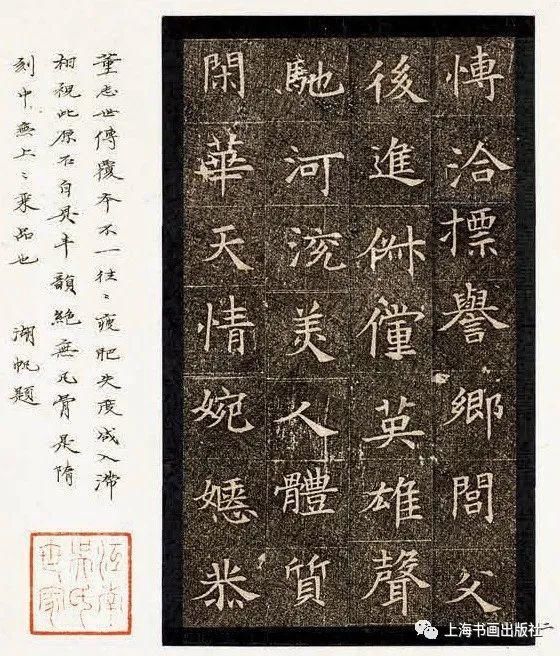 愽洽摽譽鄉閭父
後進俶儻英雄聲
馳河沇美人體質
閑華天情婉嫕恭
董志世傳覆本不一往々瘦肥失度或入滯
相視此原石自具丰韻絕無凡骨是隋
刻中無上々乘品也 湖帆題
江南吳氏世家
上海书画出版社
二